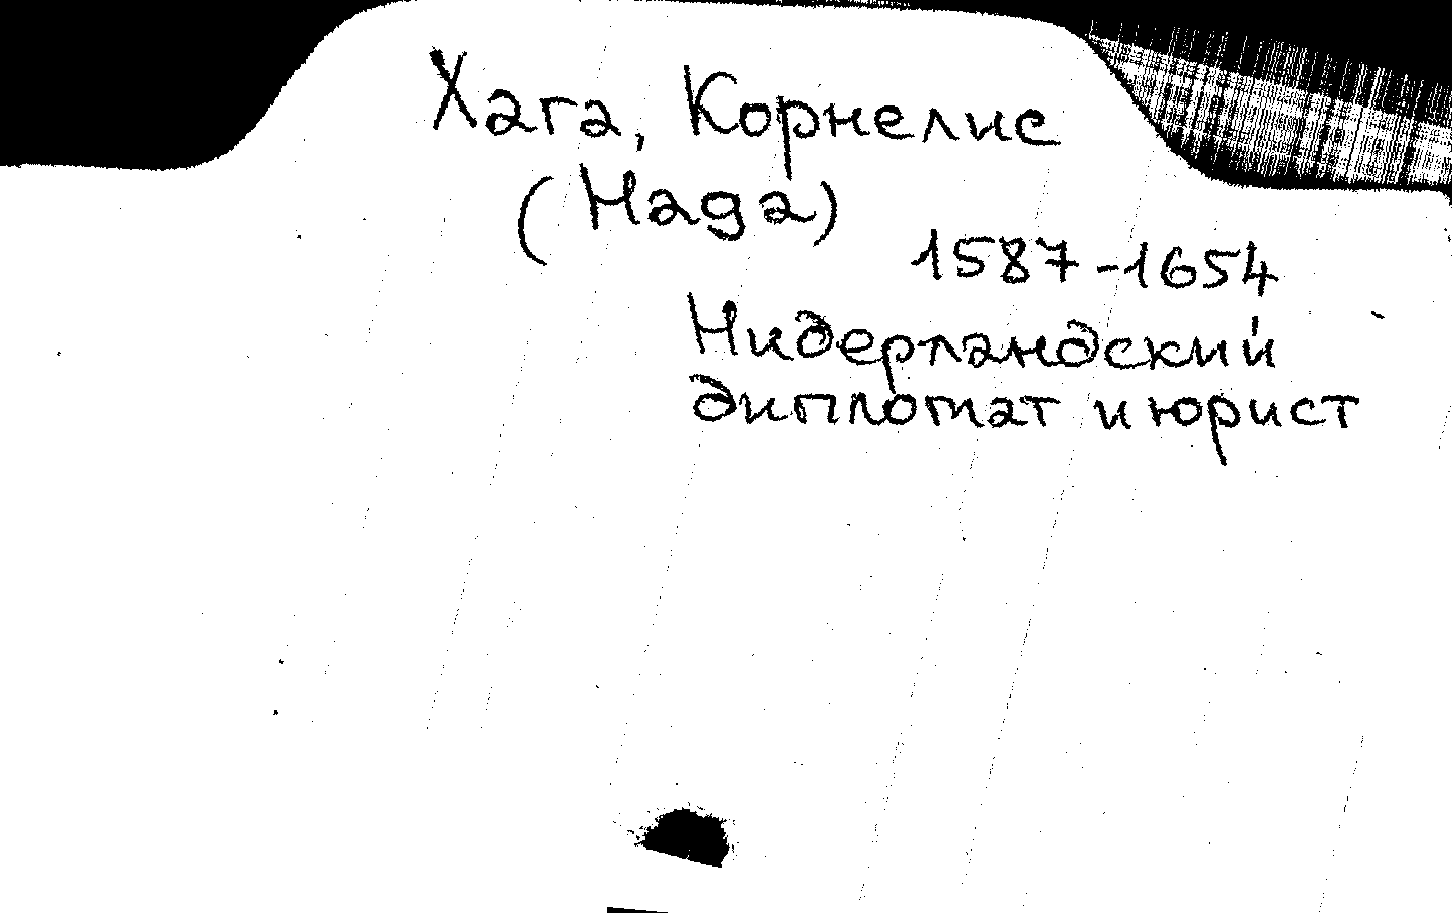 Хага, Корнелис
(Haga)
1587-1654
Нидерландский
дипломат и юрист